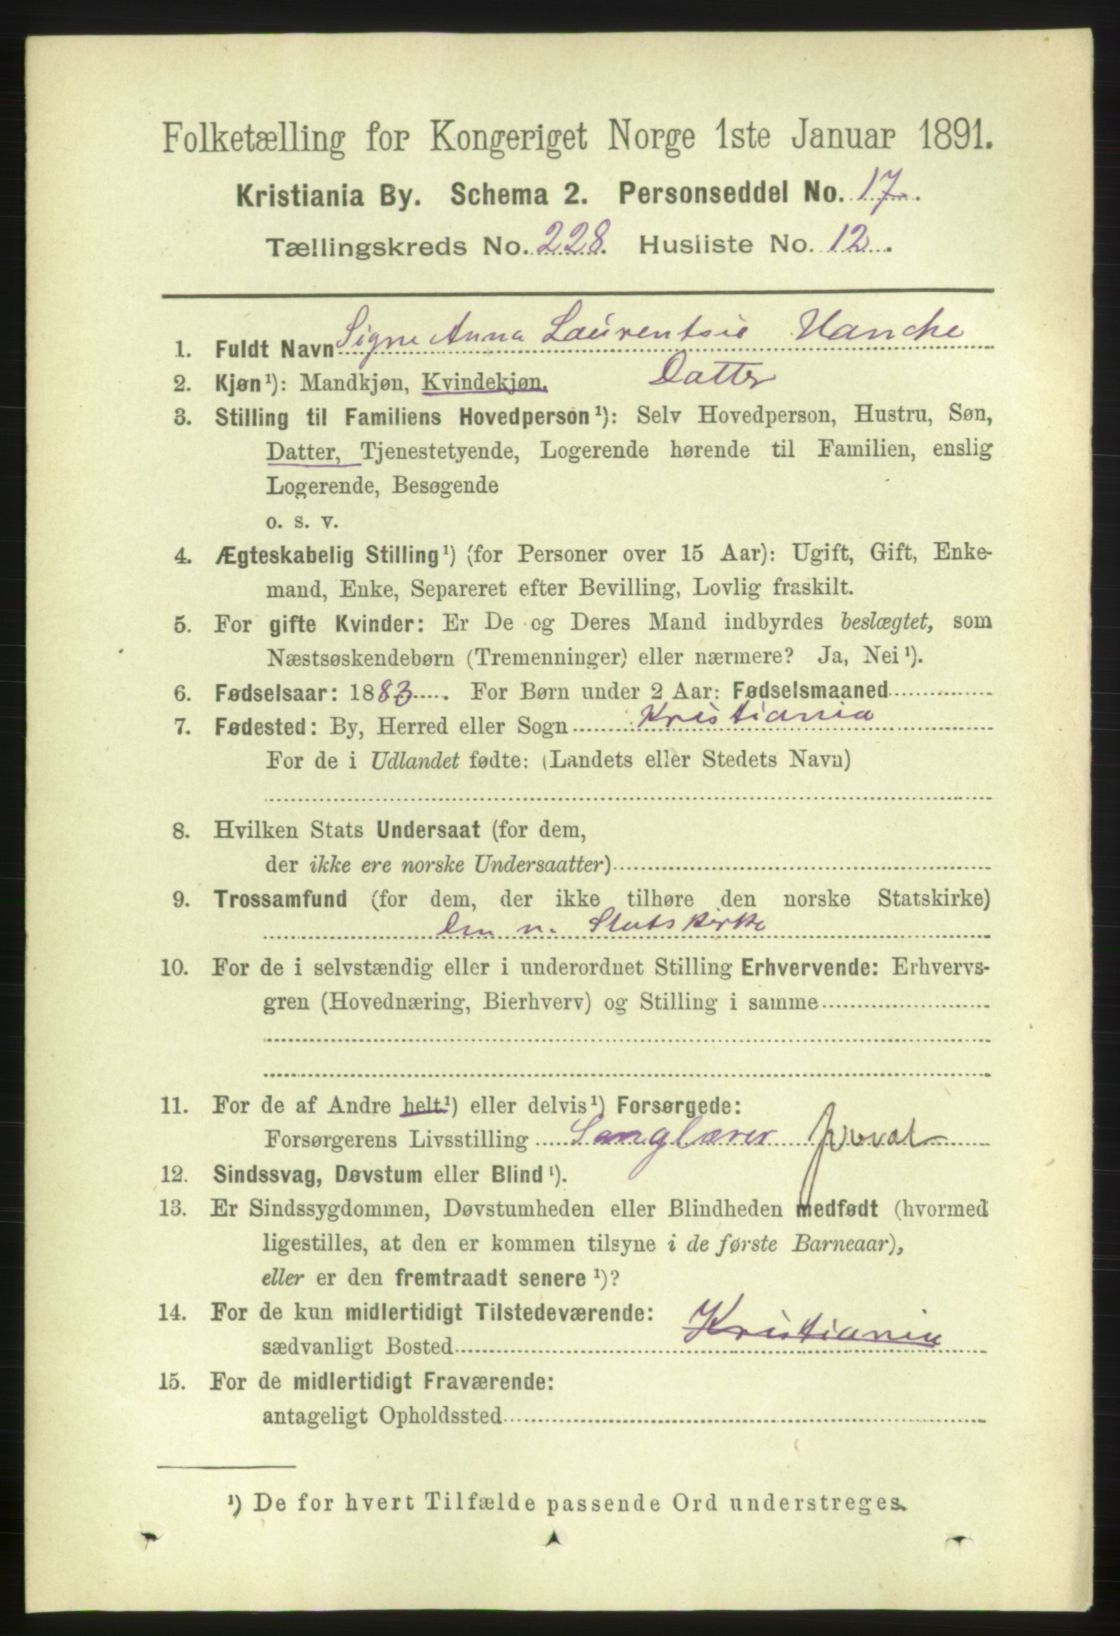 Folketælling for Kongeriget Norge 1ste Januar 1891.
Kristiania By. Schema 2. Personseddel No. 17.
Tællingskreds No. 228. Husliste No. 12.
1. Fuldt Navn Signe Anna Laurentsie Hancke
2. Kjøn¹): Mandkjøn, Kvindekjøn. Datter
3. Stilling til Familiens Hovedperson¹): Selv Hovedperson, Hustru, Søn,
Datter, Tjenestetyende, Logerende hørende til Familien, enslig
Logerende, Besøgende
o. s. v.
4. Ægteskabelig Stilling¹) (for Personer over 15 Aar): Ugift, Gift, Enke-
mand, Enke, Separeret efter Bevilling, Lovlig fraskilt.
5. For gifte Kvinder: Er De og Deres Mand indbyrdes beslægtet, som
Næstsøskendebørn (Tremenninger) eller nærmere? Ja, Nei¹).
6. Fødselsaar: 1883. For Børn under 2 Aar: Fødselsmaaned
7. Fødested: By, Herred eller Sogn Kristiania
For de i Udlandet fødte: (Landets eller Stedets Navn)
8. Hvilken Stats Undersaat (for dem,
der ikke ere norske Undersaatter)
9. Trossamfund (for dem, der ikke tilhøre den norske Statskirke)
Den n. Statskirke
10. For de i selvstændig eller i underordnet Stilling Erhvervende: Erhvervs-
gren (Hovednæring, Bierhverv) og Stilling i samme
11. For de af Andre helt¹) eller delvis¹) Forsørgede:
Forsørgerens Livsstilling Sanglærer privat
12. Sindssvag, Døvstum eller Blind¹).
13. Er Sindssygdommen, Døvstumheden eller Blindheden medfødt (hvormed
ligestilles, at den er kommen tilsyne i de første Barneaar),
eller er den fremtraadt senere¹)?
14. For de kun midlertidigt Tilstedeværende:
sædvanligt Bosted Kristiania
15. For de midlertidigt Fraværende:
antageligt Opholdssted
¹) De for hvert Tilfælde passende Ord understreges.